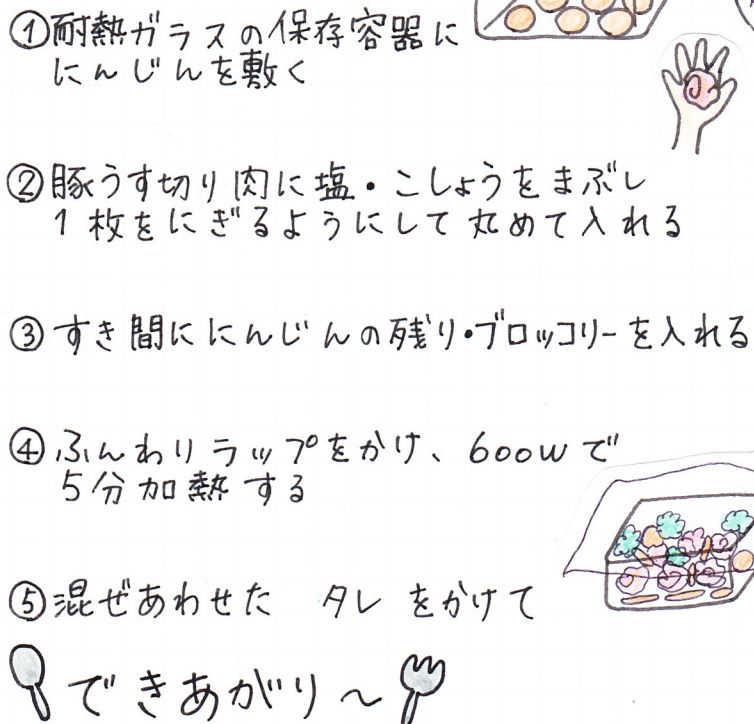 ①耐熱ガラスの保存容器に
にんじんを敷く
②豚うす切り肉に塩・こしょうをまぶし
1枚をにぎるようにして丸めて入れる
③すき間ににんじんの残り・ブロッコリーを入れる
④ふんわりラップをかけ、600Wで
5分加熱する
⑤混ぜあわせた タレ をかけて
できあがり〜